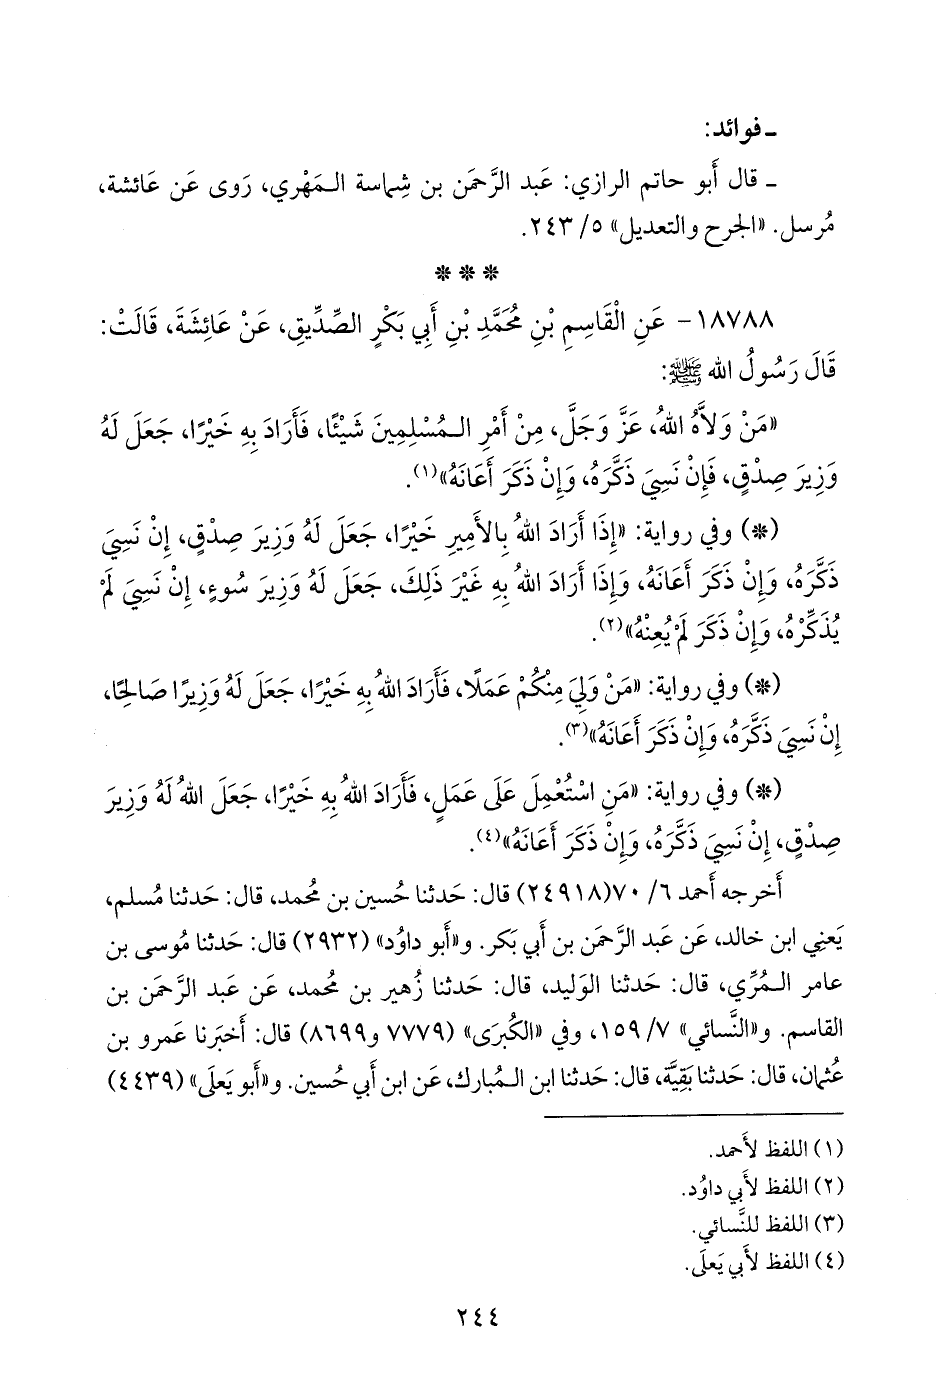 ـ فوائد:
ـ قال أَبو حاتم الرازي: عَبد الرَّحمَن بن شِماسة الـمَهْري، رَوى عَن عَائشة،
مُرسل. «الجرح والتعديل» ٥/ ٢٤٣.
* * *
١٨٧٨٨- عَنِ الْقَاسِمِ بْنِ مُحَمَّدِ بْنِ أَبِي بَكْرٍ الصِّدِّيقِ، عَنْ عَائِشَةَ، قَالَتْ:
قَالَ رَسُولُ الله ﷺ:
«مَنْ وَلاَّهُ اللهُ، عَزَّ وَجَلَّ، مِنْ أَمْرِ الـمُسْلِمِينَ شَيْئًا، فَأَرَادَ بِهِ خَيْرًا، جَعَلَ لَهُ
وَزِيرَ صِدْقٍ، فَإِنْ نَسِيَ ذَكَّرَهُ، وَإِنْ ذَكَرَ أَعَانَهُ»(١).
(*) وفي رواية: «إِذَا أَرَادَ اللهُ بِالأَمِيرِ خَيْرًا، جَعَلَ لَهُ وَزِيرَ صِدْقٍ، إِنْ نَسِيَ
ذَكَّرَهُ، وَإِنْ ذَكَرَ أَعَانَهُ، وَإِذَا أَرَادَ اللهُ بِهِ غَيْرَ ذَلِكَ، جَعَلَ لَهُ وَزِيرَ سُوءٍ، إِنْ نَسِيَ لَمْ
يُذَكِّرْهُ، وَإِنْ ذَكَرَ لَمْ يُعِنْهُ»(٢).
(*) وفي رواية: «مَنْ وَلِيَ مِنْكُمْ عَمَلًا، فَأَرَادَ اللهُ بِهِ خَيْرًا، جَعَلَ لَهُ وَزِيرًا صَالِحًا،
إِنْ نَسِيَ ذَكَّرَهُ، وَإِنْ ذَكَرَ أَعَانَهُ»(٣).
(*) وفي رواية: «مَنِ اسْتُعْمِلَ عَلَى عَمَلٍ، فَأَرَادَ اللهُ بِهِ خَيْرًا، جَعَلَ اللهُ لَهُ وَزِيرَ
صِدْقٍ، إِنْ نَسِيَ ذَكَّرَهُ، وَإِنْ ذَكَرَ أَعَانَهُ»(٤).
أَخرجه أَحمد ٦/ ٧٠(٢٤٩١٨) قال: حَدثنا حُسين بن مُحمد، قال: حَدثنا مُسلم،
يَعني ابن خالد، عَن عَبد الرَّحمَن بن أَبي بَكر. و«أَبو داوُد» (٢٩٣٢) قال: حَدثنا مُوسى بن
عامر الـمُرِّي، قال: حَدثنا الوَليد، قال: حَدثنا زُهير بن مُحمد، عَن عَبد الرَّحمَن بن
القاسم. و«النَّسائي» ٧/ ١٥٩، وفي «الكُبرَى» (٧٧٧٩ و٨٦٩٩) قال: أَخبَرنا عَمرو بن
عُثمان، قال: حَدثنا بَقِيَّة، قال: حَدثنا ابن الـمُبارك، عَن ابن أَبي حُسين. و«أَبو يَعلَى» (٤٤٣٩)
(١) اللفظ لأَحمد.
(٢) اللفظ لأَبي داوُد.
(٣) اللفظ للنَّسائي.
(٤) اللفظ لأَبي يَعلَى.
٢٤٤